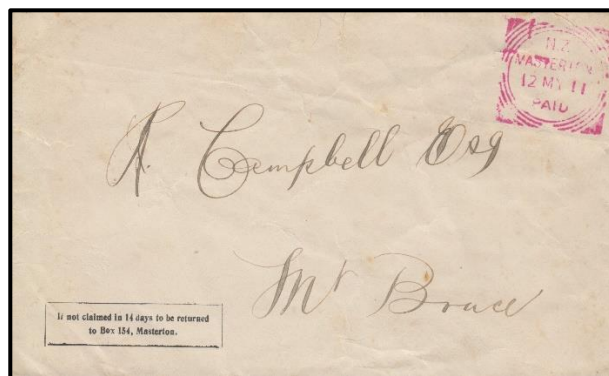 N.Z.
MASTERTON
12 MY 11
PAID
A. Campbell Esq
Mt Bruce
If not claimed in 14 days to be returned
to Box 154, Masterton.